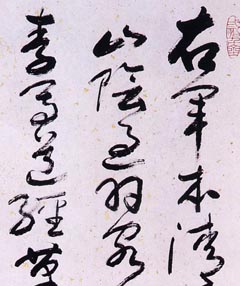 右軍本清
山陰過羽客
素寫道經筆